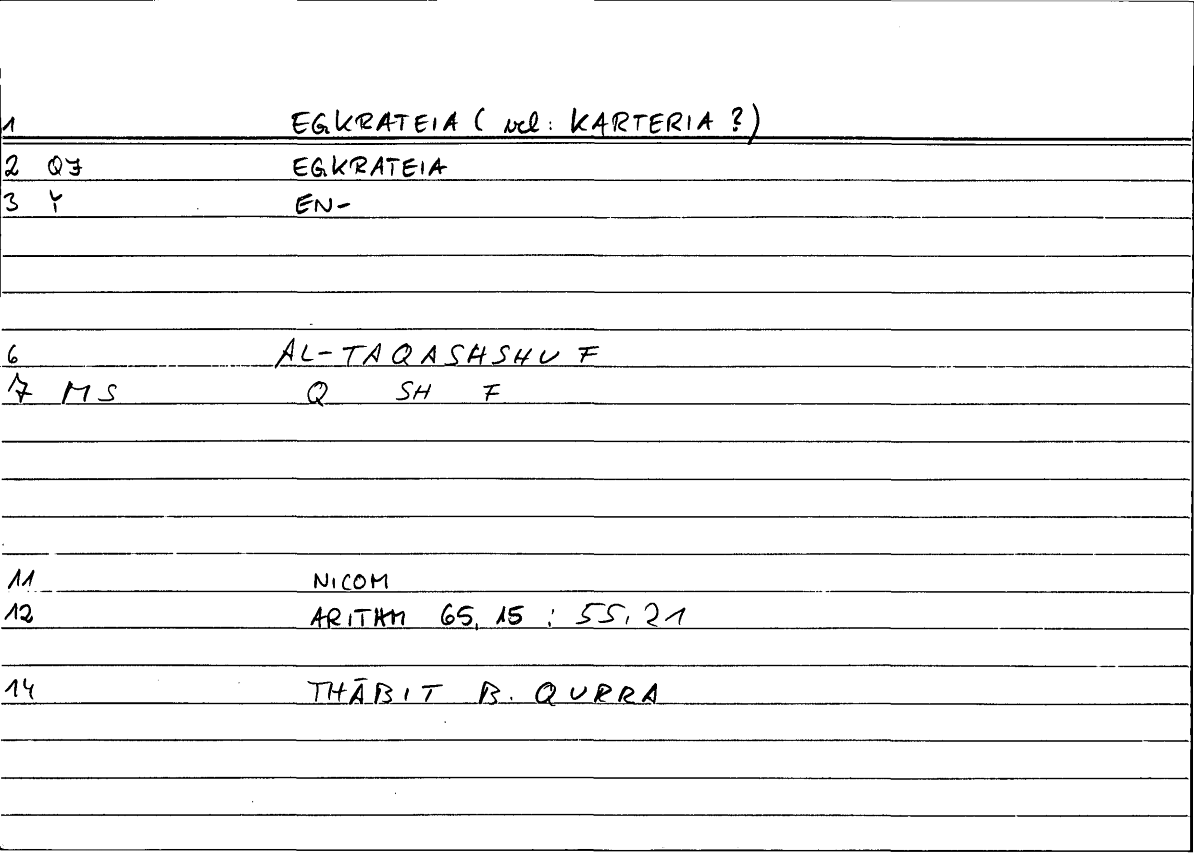 1 EGKRATEIA ( vel: KARTERIA ?)
2 QJ EGKRATEIA
3 Y EN-
6 AL-TAQASHSHUF
7 MS Q SH F
11 NICOM
12 ARITHM 65,15 : 55,21
14 THĀBIT B. QURRA